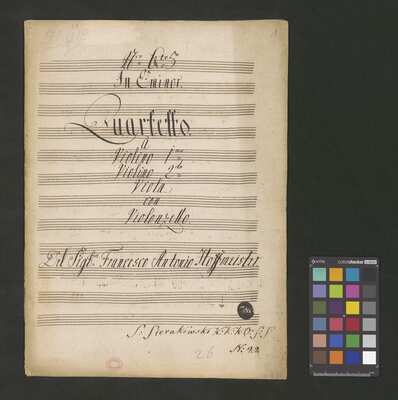 In C minor.
Quartetto.
a
Violino 1mo
Violino 2do
Viola,
con
Violonzello.
Del Sigre Francesco Antonio Hoffmeister.
S: Sierakowski
No: 22
26
colorchecker